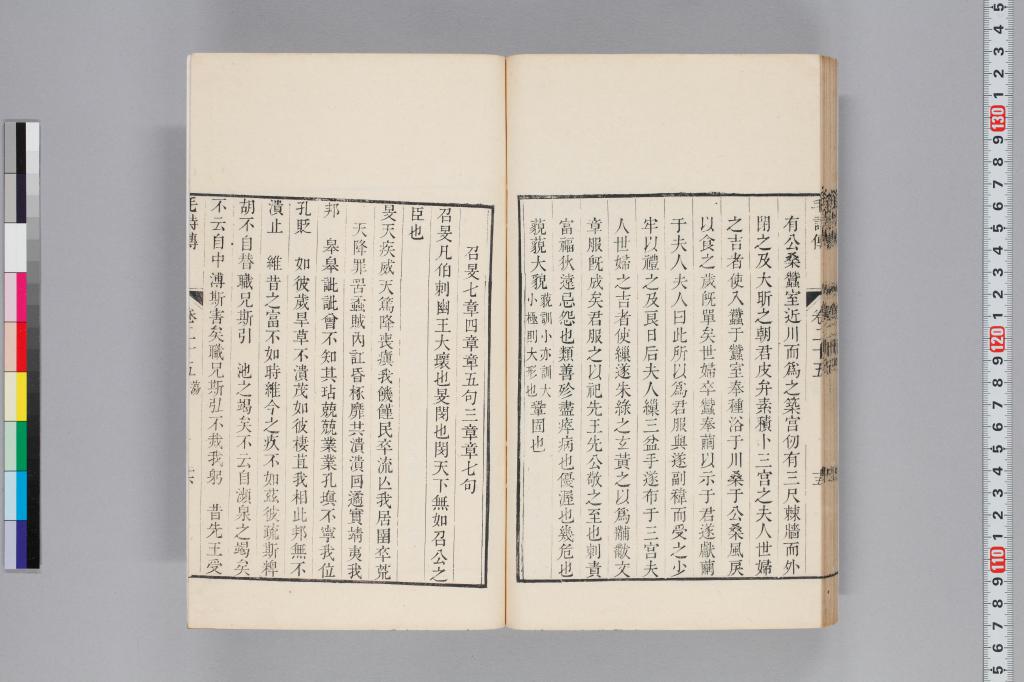 毛詩傳 卷二十五
有公桑蠶室近川而爲之築宮仞有三尺棘牆而外
閉之及大昕之朝君皮弁素積卜三宮之夫人世婦
之吉者使入蠶于蠶室奉種浴于川桑于公桑風戾
以食之歲旣單矣世婦卒蠶奉繭以示于君遂獻繭
于夫人夫人曰此所以爲君服與遂副褘而受之少
牢以禮之及良日后夫人繅三盆手遂布于三宮夫
人世婦之吉者使繅遂朱綠之玄黃之以爲黼黻文
章服旣成矣君服之以祀先王先公敬之至也刺責
富福狄遠忌怨也類善殄盡瘁病也優渥也幾危也
藐藐大貌藐訓小亦訓大小極則大形也鞏固也
召旻七章四章章五句三章章七句
召旻凡伯刺幽王大壞也旻閔也閔天下無如召公之
臣也
旻天疾威天篤降喪瘨我饑饉民卒流亾我居圉卒荒
天降罪罟蟊賊內訌昏椓靡共潰潰回遹實靖夷我
邦　皋皋訿訿曾不知其玷兢兢業業孔塡不寧我位
孔貶　如彼歲旱草不潰茂如彼棲苴我相此邦無不
潰止　維昔之富不如時維今之疚不如茲彼疏斯粺
胡不自替職兄斯引　池之竭矣不云自瀕泉之竭矣
不云自中溥斯害矣職兄斯弘不烖我躬　昔先王受
毛詩傳 卷二十五 蕩